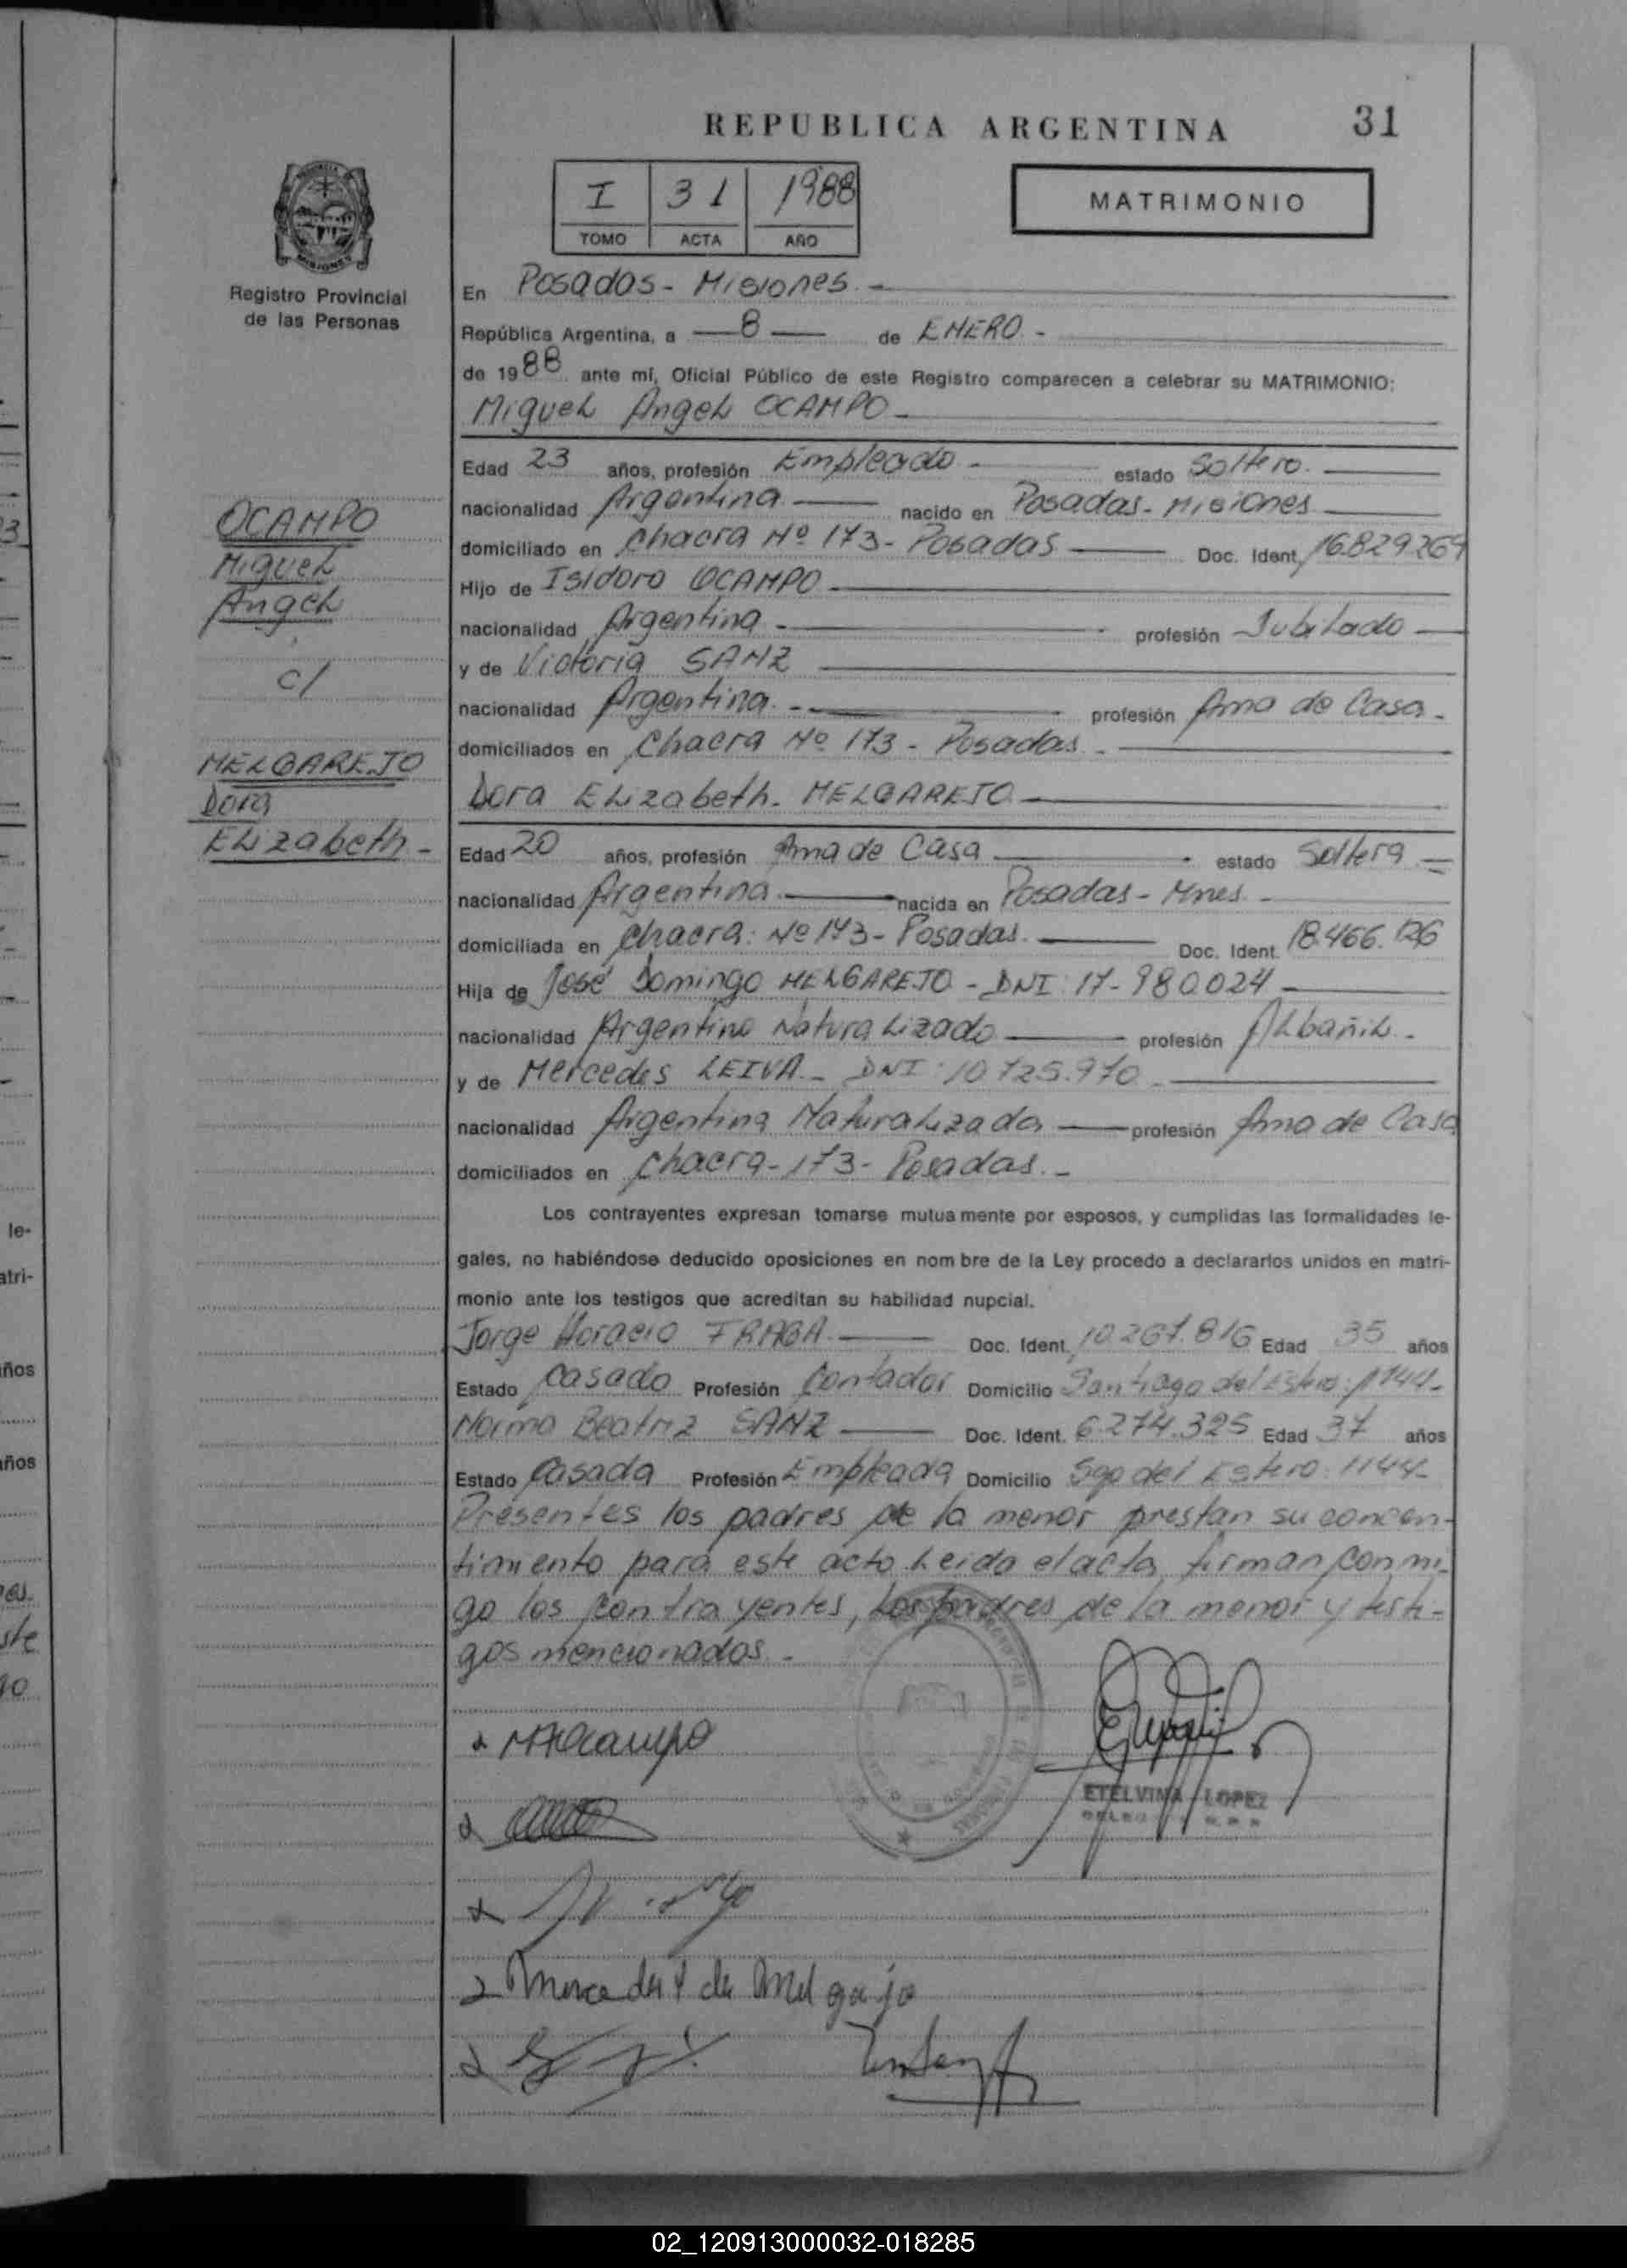 REPUBLICA ARGENTINA 31
I 31 1988
TOMO ACTA AÑO
MATRIMONIO
Registro Provincial
de las Personas
En Posadas - Misiones. -
República Argentina, a 8 de ENERO -
de 1988 ante mí, Oficial Público de este Registro comparecen a celebrar su MATRIMONIO:
Miguel Angel OCAMPO -
Edad 23 años, profesión Empleado - estado Soltero.
nacionalidad Argentina. nacido en Posadas - Misiones
domiciliado en Chacra Nº 173 - Posadas Doc. Ident. 16.829264
Hijo de Isidoro OCAMPO
nacionalidad Argentina - profesión Jubilado
y de Victoria SANZ
nacionalidad Argentina. - profesión Ama de Casa -
domiciliados en Chacra Nº 173 - Posadas -
OCAMPO
Miguel
Angel
c/
MELGAREJO
Dora
Elizabeth -
Dora Elizabeth. MELGAREJO
Edad 20 años, profesión Ama de Casa estado Soltera
nacionalidad Argentina. nacida en Posadas - Mnes. -
domiciliada en Chacra: Nº 173 - Posadas. Doc. Ident. 18.466.126
Hija de José Domingo MELGAREJO - DNI: 17-980024
nacionalidad Argentino Naturalizado profesión Albañil. -
y de Mercedes LEIVA - DNI: 10.725.970
nacionalidad Argentina Naturalizada profesión Ama de Casa
domiciliados en Chacra - 173 - Posadas. -
Los contrayentes expresan tomarse mutuamente por esposos, y cumplidas las formalidades le-
gales, no habiéndose deducido oposiciones en nombre de la Ley procedo a declararlos unidos en matri-
monio ante los testigos que acreditan su habilidad nupcial.
Jorge Horacio FRAGA Doc. Ident. 10.267.816 Edad 35 años
Estado Casado Profesión Contador Domicilio Santiago del Estero: 1144-
Norma Beatriz SANZ Doc. Ident. 6.274.325 Edad 37 años
Estado Casada Profesión Empleada Domicilio Sgo del Estero: 1144-
Presentes los padres de la menor prestan su concen-
timiento para este acto. Leida el acta, firman conmi-
go los contrayentes, los padres de la menor y testi-
gos mencionados. -
MAOcampo
ETELVINA LOPEZ
Mercedes de Melgarejo
02_120913000032-018285